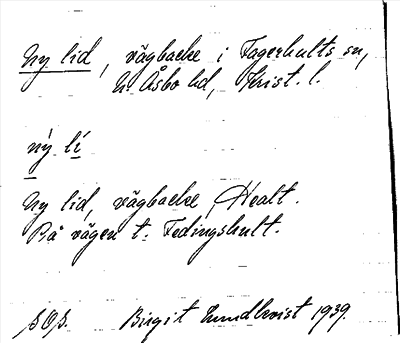 Ny lid, vägbacke i Fagerhults sn,
N. Åsbo hd, Krist. l.
ny lí
Ny lid, vägbacke, Healt.
På vägen t. Fedingshult.
Birgit Lundkvist 1939.